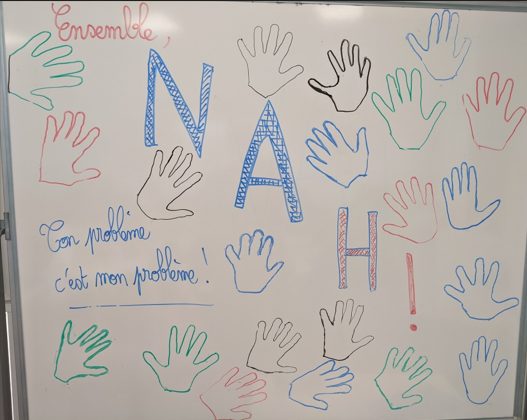 Ensemble,
NAH!
Ton problème
c'est mon problème!